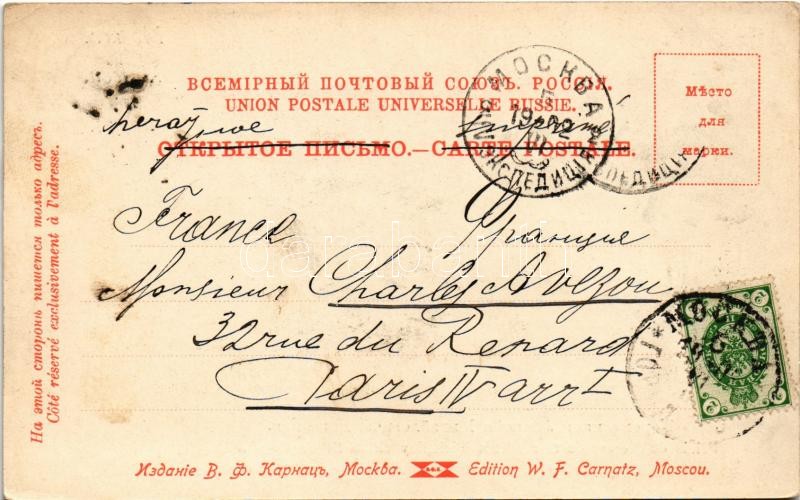 ВСЕМІРНЫЙ ПОЧТОВЫЙ СОЮЗЪ. РОССІЯ.
UNION POSTALE UNIVERSELLE RUSSIE.
печатное imprimé
ОТКРЫТОЕ ПИСЬМО.—CARTE POSTALE.
Мѣсто
для
марки.
МОСКВА
ЭКСПЕДИЦІЯ
France Франція
Monsieur Charles Avezou
32 rue du Renard
Paris IV arrt
МОСКВА
На этой сторонѣ пишется только адресъ.
Côté réservé exclusivement à l'adresse.
Изданіе В. Ф. Карнацъ, Москва. Edition W. F. Carnatz, Moscou.
darabanth